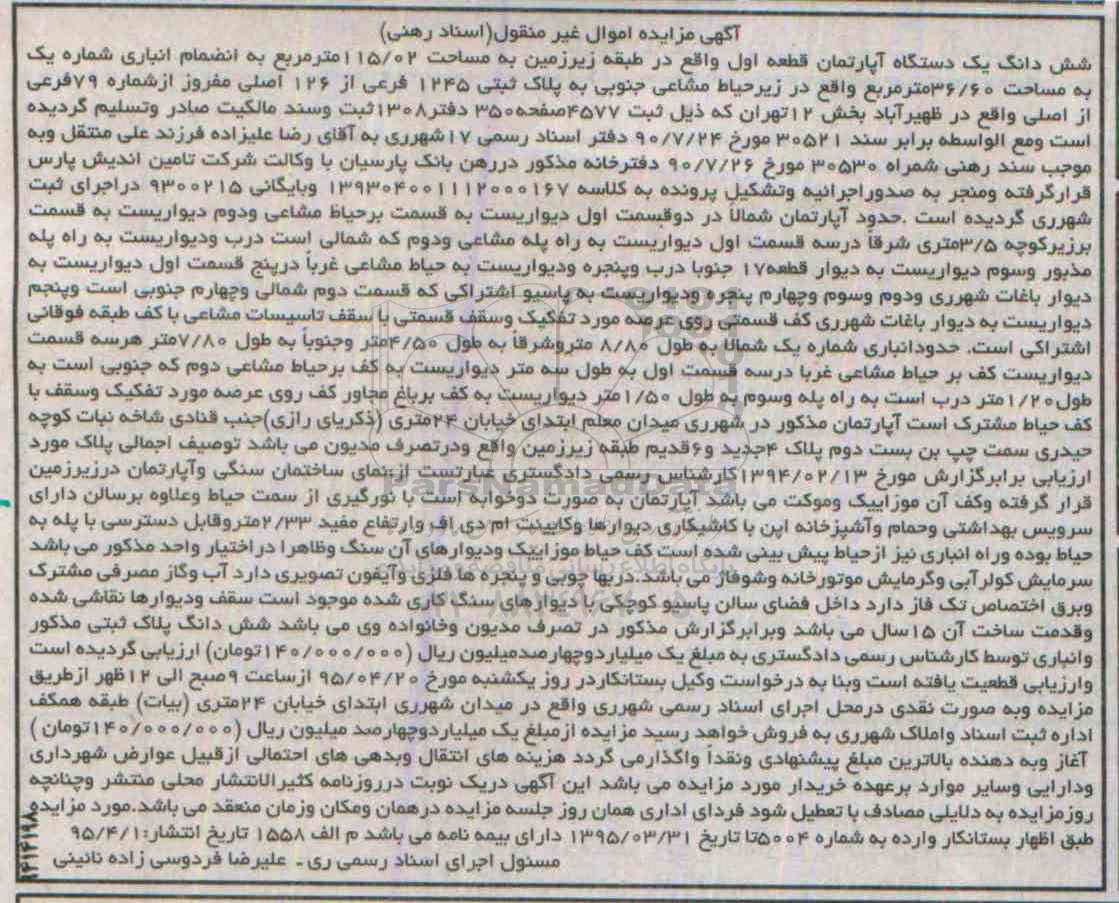 آگهی مزایده اموال غیر منقول(اسناد رهنی)
شش دانگ یک دستگاه آپارتمان قطعه اول واقع در طبقه زیرزمین به مساحت ۱۱۵/۰۲مترمربع به انضمام انباری شماره یک
به مساحت ۳۶/۶۰مترمربع واقع در زیرحیاط مشاعی جنوبی به پلاک ثبتی ۱۲۴۵ فرعی از ۱۲۶ اصلی مفروز ازشماره ۷۹فرعی
از اصلی واقع در ظهیرآباد بخش ۱۲تهران که ذیل ثبت ۴۵۷۷صفحه۳۵۰ دفتر۱۳۰۸ثبت وسند مالکیت صادر وتسلیم گردیده
است ومع الواسطه برابر سند ۳۰۵۲۱ مورخ ۹۰/۷/۲۴ دفتر اسناد رسمی ۱۷شهرری به آقای رضا علیزاده فرزند علی منتقل وبه
موجب سند رهنی شمراه ۳۰۵۳۰ مورخ ۹۰/۷/۲۶ دفترخانه مذکور دررهن بانک پارسیان با وکالت شرکت تامین اندیش پارس
قرارگرفته ومنجر به صدوراجرائیه وتشکیل پرونده به کلاسه ۱۳۹۳۰۴۰۰۱۱۱۲۰۰۰۱۶۷ وبایگانی ۹۳۰۰۲۱۵ دراجرای ثبت
شهرری گردیده است .حدود آپارتمان شمالاً در دوقسمت اول دیواریست به قسمت برحیاط مشاعی ودوم دیواریست به قسمت
برزیرکوچه ۳/۵متری شرقا درسه قسمت اول دیواریست به راه پله مشاعی ودوم که شمالی است درب ودیواریست به راه پله
مذبور وسوم دیواریست به دیوار قطعه۱۷ جنوبا درب وپنجره ودیواریست به حیاط مشاعی غرباً درپنج قسمت اول دیواریست به
دیوار باغات شهرری ودوم وسوم وچهارم پنجره ودیواریست به پاسیو اشتراکی که قسمت دوم شمالی وچهارم جنوبی است وپنجم
دیواریست به دیوار باغات شهرری کف قسمتی روی عرصه مورد تفکیک وسقف قسمتی با سقف تاسیسات مشاعی با کف طبقه فوقانی
اشتراکی است. حدودانباری شماره یک شمالا به طول ۸/۸۰ متروشرقا به طول ۴/۵۰متر وجنوباً به طول ۷/۸۰متر هرسه قسمت
دیواریست کف بر حیاط مشاعی غربا درسه قسمت اول به طول سه متر دیواریست به کف برحیاط مشاعی دوم که جنوبی است به
طول۱/۲۰متر درب است به راه پله وسوم به طول ۱/۵۰متر دیواریست به کف برباغ مجاور کف روی عرصه مورد تفکیک وسقف با
کف حیاط مشترک است آپارتمان مذکور در شهرری میدان معلم ابتدای خیابان ۲۴متری (ذکریای رازی)جنب قنادی شاخه نبات کوچه
حیدری سمت چپ بن بست دوم پلاک ۴جدید و۶قدیم طبقه زیرزمین واقع ودرتصرف مدیون می باشد توصیف اجمالی پلاک مورد
ارزیابی برابرگزارش مورخ ۱۳۹۴/۰۲/۱۳کارشناس رسمی دادگستری عبارتست ازنمای ساختمان سنگی وآپارتمان درزیرزمین
قرار گرفته وکف آن موزاییک وموکت می باشد آپارتمان به صورت دوخوابه است با نورگیری از سمت حیاط وعلاوه برسالن دارای
سرویس بهداشتی وحمام وآشپزخانه اپن با کاشیکاری دیوارها وکابینت ام دی اف وارتفاع مفید ۲/۳۳متروقابل دسترسی با پله به
حیاط بوده وراه انباری نیز ازحیاط پیش بینی شده است کف حیاط موزاییک ودیوارهای آن سنگ وظاهرا دراختیار واحد مذکور می باشد
سرمایش کولرآبی وگرمایش موتورخانه وشوفاژ می باشد.دربها چوبی و پنجره ها فلزی وآیفون تصویری دارد آب وگاز مصرفی مشترک
وبرق اختصاص تک فاز دارد داخل فضای سالن پاسیو کوچکی با دیوارهای سنگ کاری شده موجود است سقف ودیوارها نقاشی شده
وقدمت ساخت آن ۱۵سال می باشد وبرابرگزارش مذکور در تصرف مدیون وخانواده وی می باشد شش دانگ پلاک ثبتی مذکور
وانباری توسط کارشناس رسمی دادگستری به مبلغ یک میلیاردوچهارصدمیلیون ریال (۱۴۰/۰۰۰/۰۰۰تومان) ارزیابی گردیده است
وارزیابی قطعیت یافته است وبنا به درخواست وکیل بستانکاردر روز یکشنبه مورخ ۹۵/۰۴/۲۰ ازساعت ۹صبح الی ۱۲ظهر ازطریق
مزایده وبه صورت نقدی درمحل اجرای اسناد رسمی شهرری واقع در میدان شهرری ابتدای خیابان ۲۴متری (بیات) طبقه همکف
اداره ثبت اسناد واملاک شهرری به فروش خواهد رسید مزایده ازمبلغ یک میلیاردوچهارصد میلیون ریال (۱۴۰/۰۰۰/۰۰۰تومان )
آغاز وبه دهنده بالاترین مبلغ پیشنهادی ونقداً واگذارمی گردد هزینه های انتقال وبدهی های احتمالی ازقبیل عوارض شهرداری
ودارایی وسایر موارد برعهده خریدار مورد مزایده می باشد این آگهی دریک نوبت درروزنامه کثیرالانتشار محلی منتشر وچنانچه
روزمزایده به دلایلی مصادف با تعطیل شود فردای اداری همان روز جلسه مزایده درهمان ومکان وزمان منعقد می باشد.مورد مزایده
طبق اظهار بستانکار وارده به شماره ۵۰۰۴تا تاریخ ۱۳۹۵/۰۳/۳۱ دارای بیمه نامه می باشد م الف ۱۵۵۸ تاریخ انتشار:۹۵/۴/۱
مسئول اجرای اسناد رسمی ری ـ علیرضا فردوسی زاده نائینی
ParsNamadData